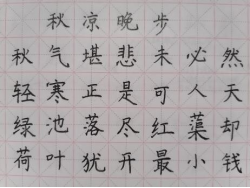 秋凉晚步
秋气堪悲未必然
轻寒正是可人天
绿池落尽红蕖却
荷叶犹开最小钱